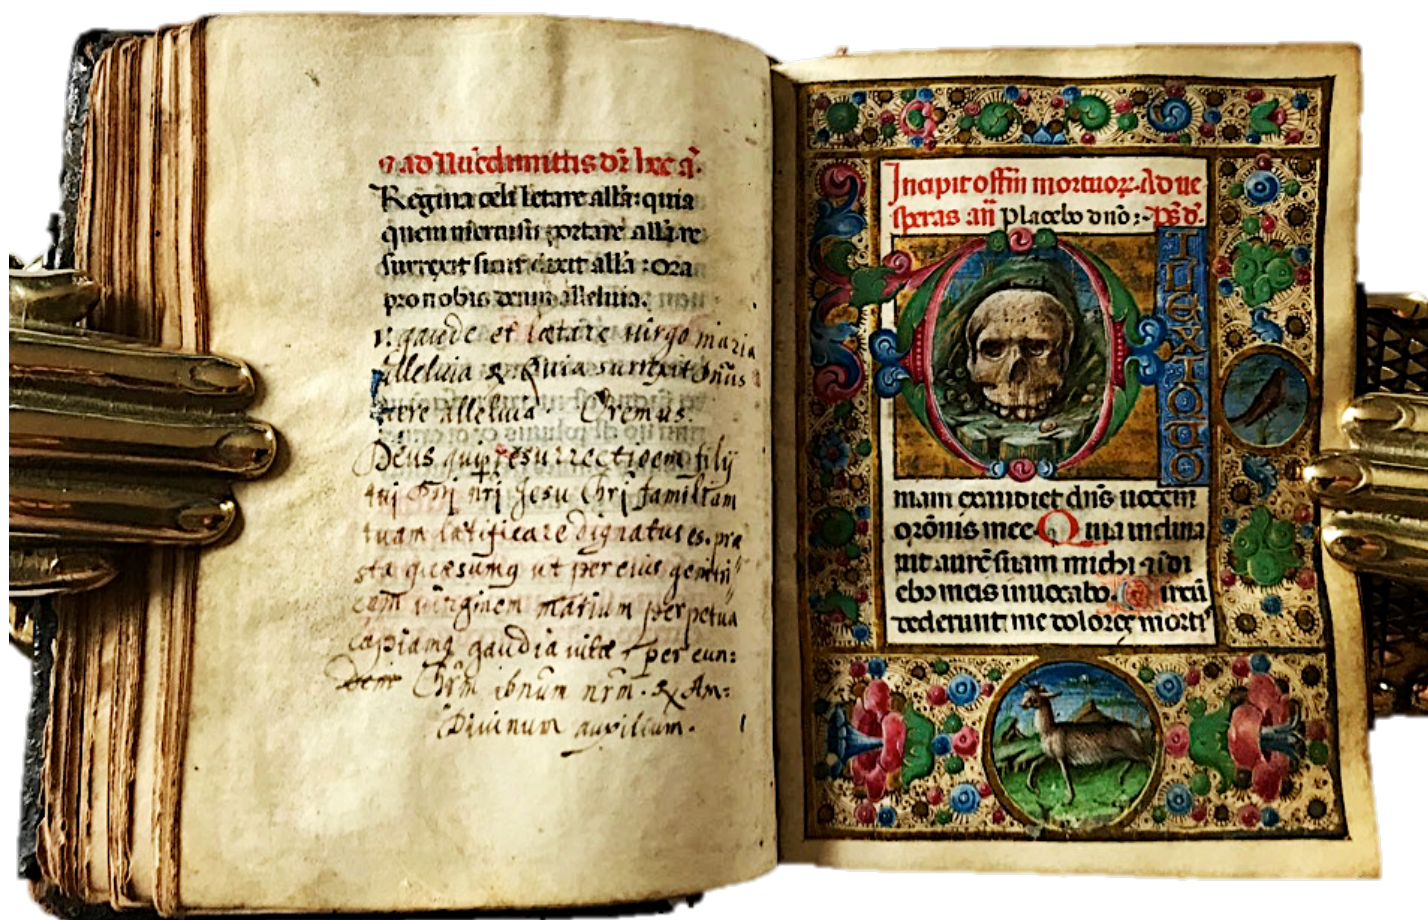 ad Nuncdimittis dr̄ hec aᷓ.
Regina celi letare all'a: quia
quem meruisti portare all'a re
surrexit sicut dixit all'a: Ora
pro nobis deum alleluia.
℣. gaude et lætare uirgo maria
alleluia ℞ Quia surrexit Dn̄us
uere alleluia. Oremus.
Deus qui ꝑ resurrectioem filij
tui Dn̄i nr̄i Jesu Chr̄i familiam
tuam lætificare dignatus es. præ
sta quæsumꝫ ut per eius genitri
cem uirginem mariam perpetua
capiamꝫ gaudia uitæ. per eun:
dem Chr̄m dn̄um nr̄m. ℞ Am:
Diuinum auxilium.
Incipit offm̄ mortuoꝝ. Ad ue
speras an̄ Placebo dn̄o: Ps. d.
DILEXI QUO
niam exaudiet dn̄s uocem
orōnis mee. Quia inclina
uit aurē suam michi ⁊ i di
ebꝫ meis inuocabo. Circū
dederunt me dolores mortꝭ